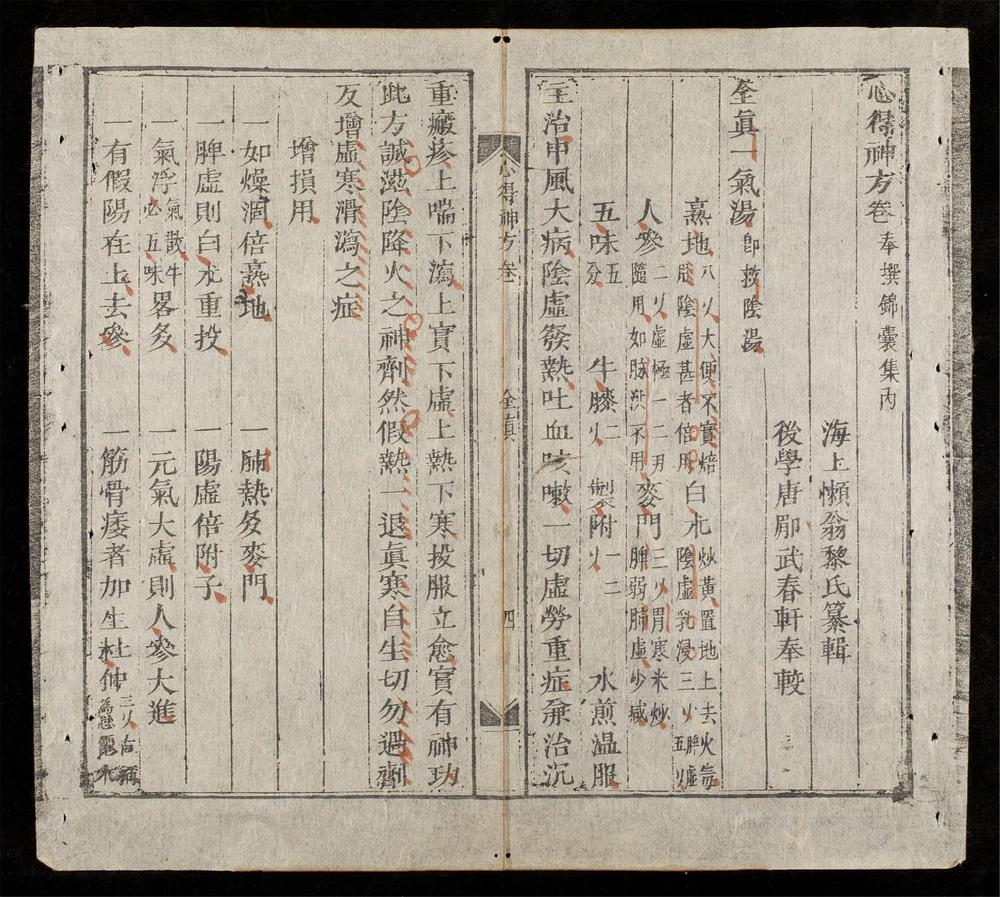 心得神方卷 奉撰錦囊集內
海上懶翁黎氏纂輯
後學唐郿武春軒奉較
全眞一氣湯 即救陰湯
熟地 八𠂆大便不實焙用陰虛甚者倍用 白朮 炒黃置地上去火毒陰虛乳浸三𠂆脾虛五𠂆
人參 二𠂆虛極一二両隨用如脉洪不用 麥門 三𠂆胃寒米炒脾弱肺虛少减
五味 五分 牛膝 二𠂆 製附 一二𠂆 水煎温服
主治中風大病陰虛發熱吐血咳嗽一切虛勞重症兼治沉
心得神方卷 全真 四
重癜疹上喘下瀉上實下虛上熱下寒投服立愈實有神功
此方誠滋陰降火之神劑然假熱一退眞寒自生切勿過劑
反增虛寒滑瀉之症
增損用
一如燥涸倍熟地 一肺熱多麥門
一脾虛則白朮重投 一陽虛倍附子
一氣浮氣散牛必五味畧多 一元氣大虛則人參大進
一有假陽在上去參 一筋骨痿者加生杜仲